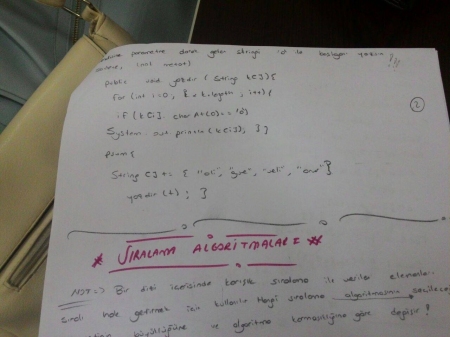 parametre olan gelen stringi a ile başlıyor yazsın
public void yazdir ( String k[]){
for (int i=0, k.length ; i++){
if (k[i]. char At(0)== 'a')
System. out. println (k[i]); } }
psvm{
2
String [] t = { "ali", "eli",
yazdir (t) ; }
* SIRALAMA ALGORİTMALARI *
NOT=> Bir dizi içerisinde karışık sıralama ile verilen elemanları
sıralı hale getirmek için kullanılır Hangi sıralama algoritmasının seçileceği
büyüklüğüne ve algoritma karmaşıklığına göre değişir!